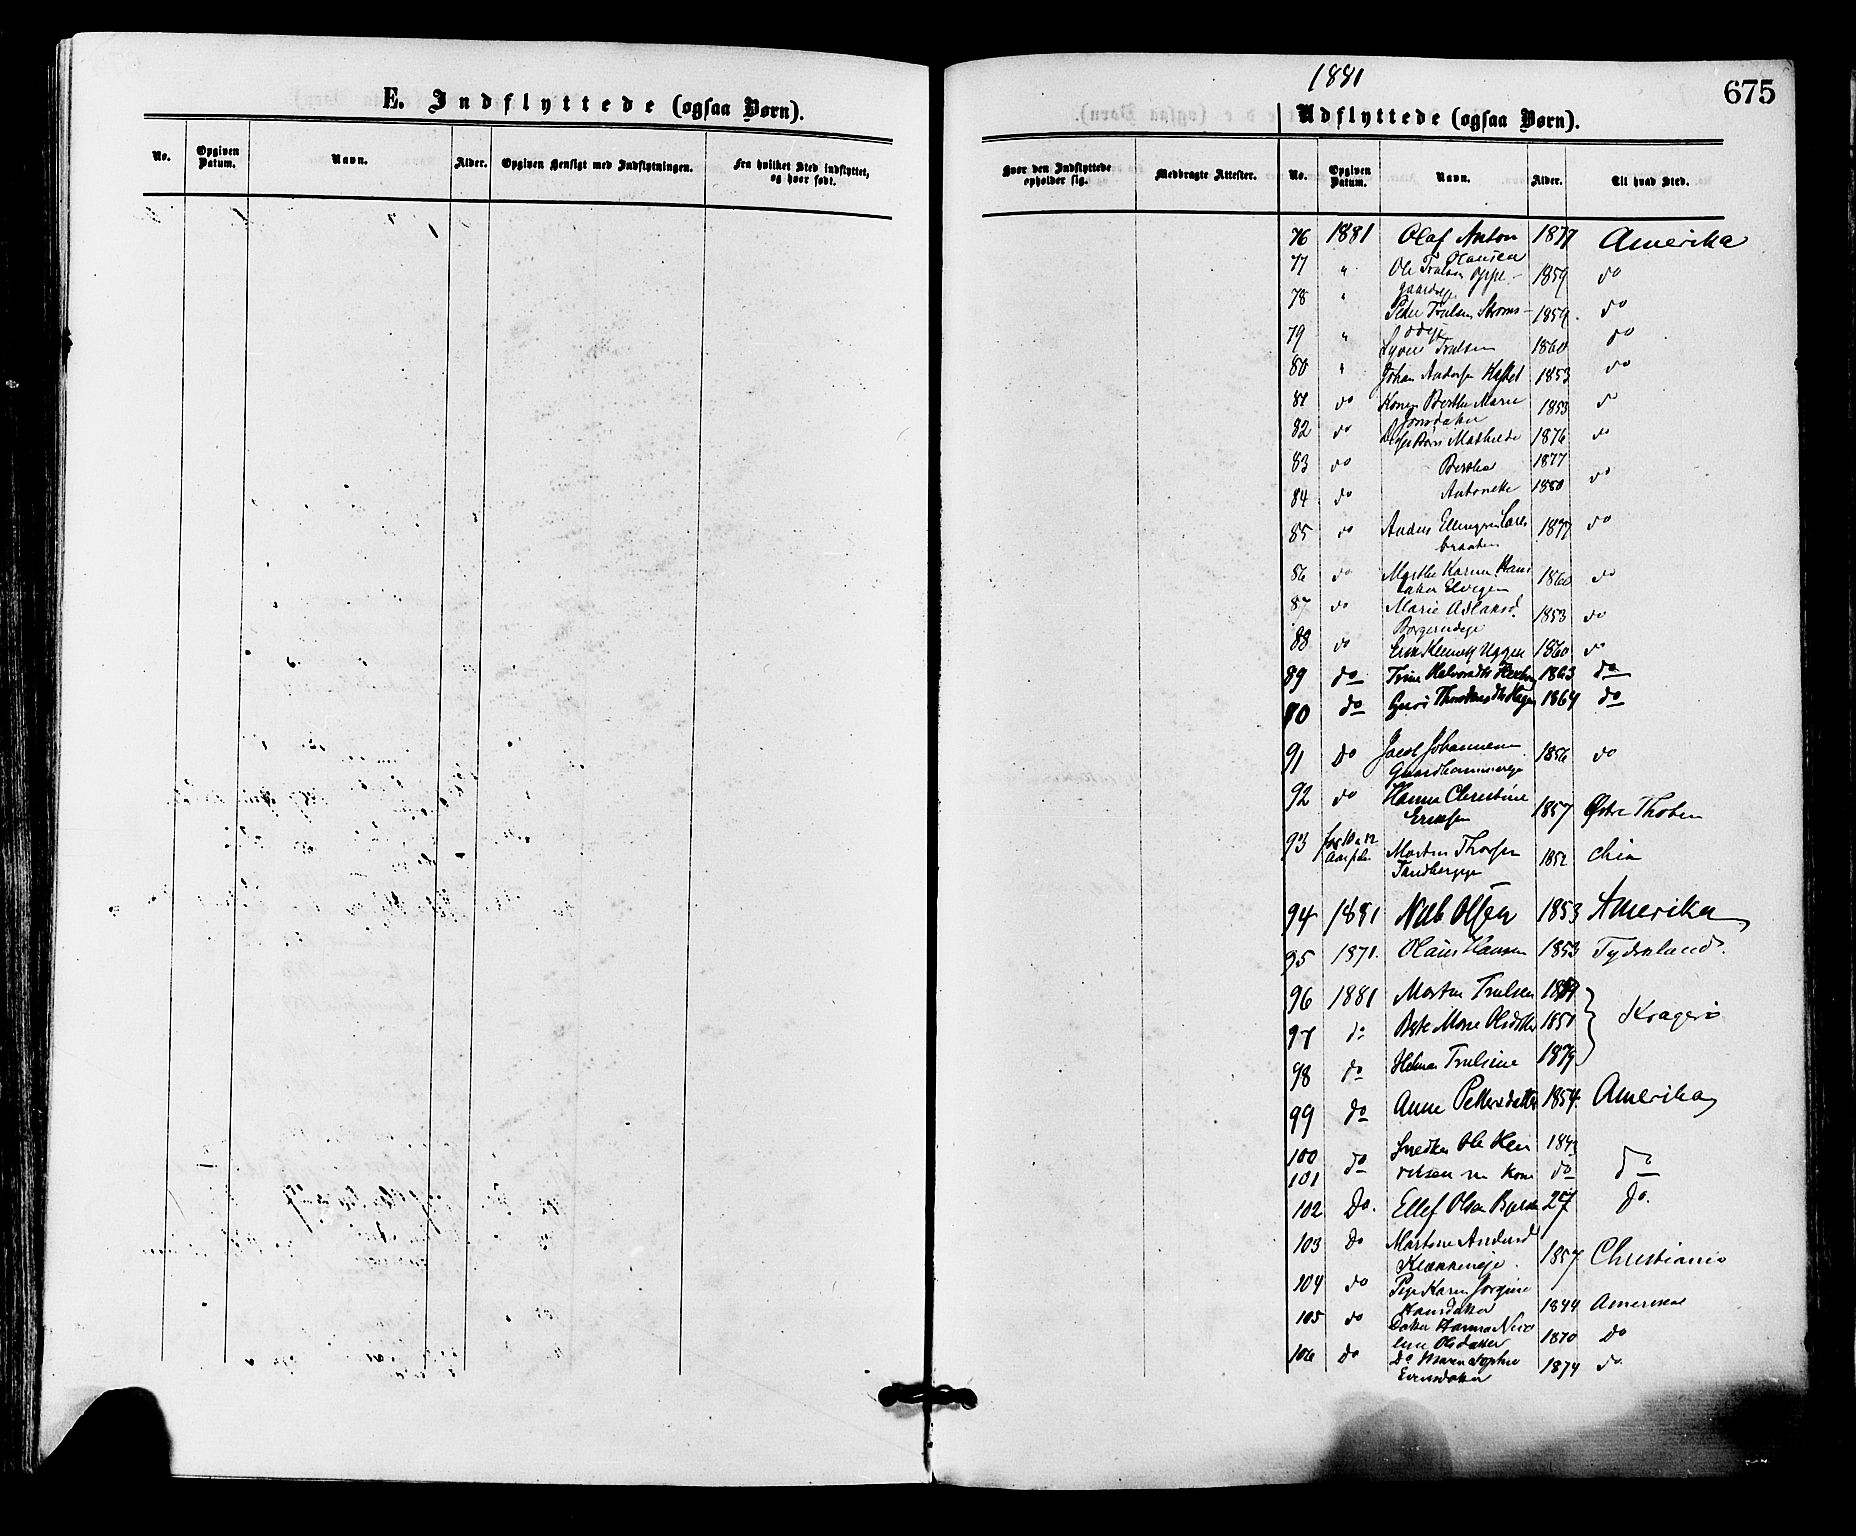 E. Indflyttede (ogsaa Børn).
No. Opgiven Datum. Navn. Alder. Opgiven Hensigt med Indflytningen. Fra hvilket Sted indflyttet, og hvor født.
1881
675
Udflyttede (ogsaa Børn).
Hvor den Indflyttede opholder sig. Medbragte Attester. No. Opgiven Datum. Navn. Alder. Til hvad Sted.
76 1881 Olaf Anton 1877 Amerika
Olausen
77 " Ole Trulsen Oppe- 1859 do
gaardseje
78 " Peder Trulsen Stroms- 1859. do
odeje
79 " Syver Trulsen 1860 do
80 " Johan Andersen 1853 do
81 do Konen Berthe Marie 1853 do
Jonsdatter
82 do Mathilde 1876 do
83 do Berthe 1877
84 do Antonette 1880 do
85 do Anders Ellingsen 1877 do
braaten
86 do Marthe Karine Hans 1860 do
datter Elvegen
87 do Marie Aslaksd. 1853 do
88 do Uggen 1860 do
89 do Trine 1863 do
90 do Guri 1864 do
91 Do Jacob Johannesen 1856 do
Gaardhammereje
92 do Hanna Christine 1857 Østre Thoten
Eriksen
93 for 10 a 12 Morten Thorsen 1852
Aar siden Tandbergeje
94 1881 Nils Olsen 1853 Amerika
95 1871. Olaus Hansen 1853 Tydskland.
96 1881 Morten Trulsen
97 do Olsdatter 1850 Kragerø
98 do Helmar Trulsine 1879
99 do Anne Pettersdatter 1854. Amerika
100 do Snedker Ole Hen 1843
101 riksen og Kone do do
102 Do. Ellef Olsen 27 do.
103 Do Martine Andersd 1857 Christiania
Klækkeneje.
104 do Pige Karen Jorgine
Hansdatter 1844 Amerika
105 do Datter Hanna Nico
line Olsdatter 1870 Do
106 Do Do Maren Sophie 1874 do
Evensdatter